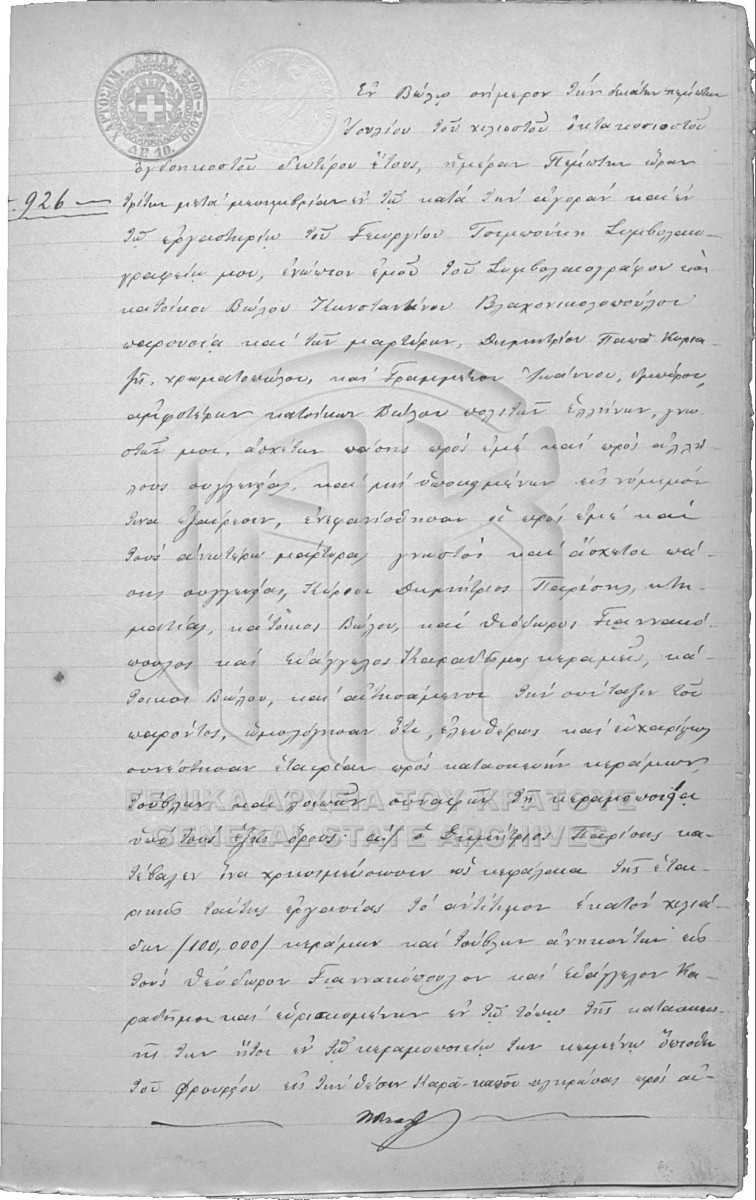 ΧΑΡΤΟΣΗΜ. ΑΞΙΑΣ
ΔΡ. 10.
Ἐν Βώλῳ σήμερον τὴν δεκάτην πέμπτην
Ἰουλίου τοῦ χιλιοστοῦ ὀκτακοσιοστοῦ
Ὀγδοηκοστοῦ δευτέρου ἔτους, ἡμέραν Πέμπτην ὥραν
926
τρίτην μετὰ μεσημβρίαν ἐν τῷ κατὰ τὴν ἀγορὰν καὶ ἐν
τῷ ἐργαστηρίῳ τοῦ Γεωργίου Τσιμπούκη Συμβολαιο-
γραφείῳ μου, ἐνώπιον ἐμοῦ τοῦ Συμβολαιογράφου καὶ
κατοίκου Βώλου Κωνσταντίνου Βλαχονικολοπούλου
παρουσίᾳ καὶ τῶν μαρτύρων, Δημητρίου Παπᾶ Κυρια-
ζῆ, χρωματοπώλου, καὶ Γραμμένου Ἰωάννου, ἐμπόρου,
ἀμφοτέρων κατοίκων Βώλου πολιτῶν ἑλλήνων, γνω-
στῶν μοι, ἀσχέτων πάσης πρὸς ἐμὲ καὶ πρὸς ἀλλή-
λους συγγενείας, καὶ μὴ ὑποκειμένων εἰς νόμιμόν
τινα ἐξαίρεσιν, ἐνεφανίσθησαν οἱ πρὸς ἐμὲ καὶ
τοὺς ἀνωτέρω μάρτυρας γνωστοὶ καὶ ἄσχετοι πά-
σης συγγενείας, Κύριοι Δημήτριος Παρίσης, κτη-
ματίας, κάτοικος Βώλου, καὶ Θεόδωρος Γιαννακό-
πουλος καὶ Εὐάγγελος Καραδῆμος κεραμεῖς, κά-
τοικοι Βώλου, καὶ αἰτησάμενοι τὴν σύνταξιν τοῦ
παρόντος, ὡμολόγησαν ὅτι, ἐλευθέρως καὶ εὐχαρίστως
συνέστησαν ἑταιρίαν πρὸς κατασκευὴν κεράμων,
τούβλων καὶ λοιπῶν συναφῶν τῇ κεραμοποιΐᾳ
ὑπὸ τοὺς ἑξῆς ὅρους α/ ὁ Δημήτριος Παρίσης κα-
τέβαλεν ἵνα χρησιμεύσωσιν ὡς κεφάλαια τῆς ἑται-
ρικῆς ταύτης ἐργασίας τὸ ἀντίτιμον ἑκατὸν χιλιά-
δων /100,000/ κεράμων καὶ τούβλων ἀνηκόντων εἰς
τοὺς Θεόδωρον Γιαννακόπουλον καὶ Εὐάγγελον Κα-
ραδῆμον καὶ εὑρισκομένων ἐν τῷ τόπῳ τῆς κατασκευ-
ῆς των ἤτοι ἐν τῷ κεραμοποιείῳ των κειμένῳ ὄπισθεν
τοῦ Φρουρίου εἰς τὴν θέσιν Καρᾶ-καποῦ πληρώσας πρὸς αὐ-
ΓΕΝΙΚΑ ΑΡΧΕΙΑ ΤΟΥ ΚΡΑΤΟΥΣ
GENERAL STATE ARCHIVES